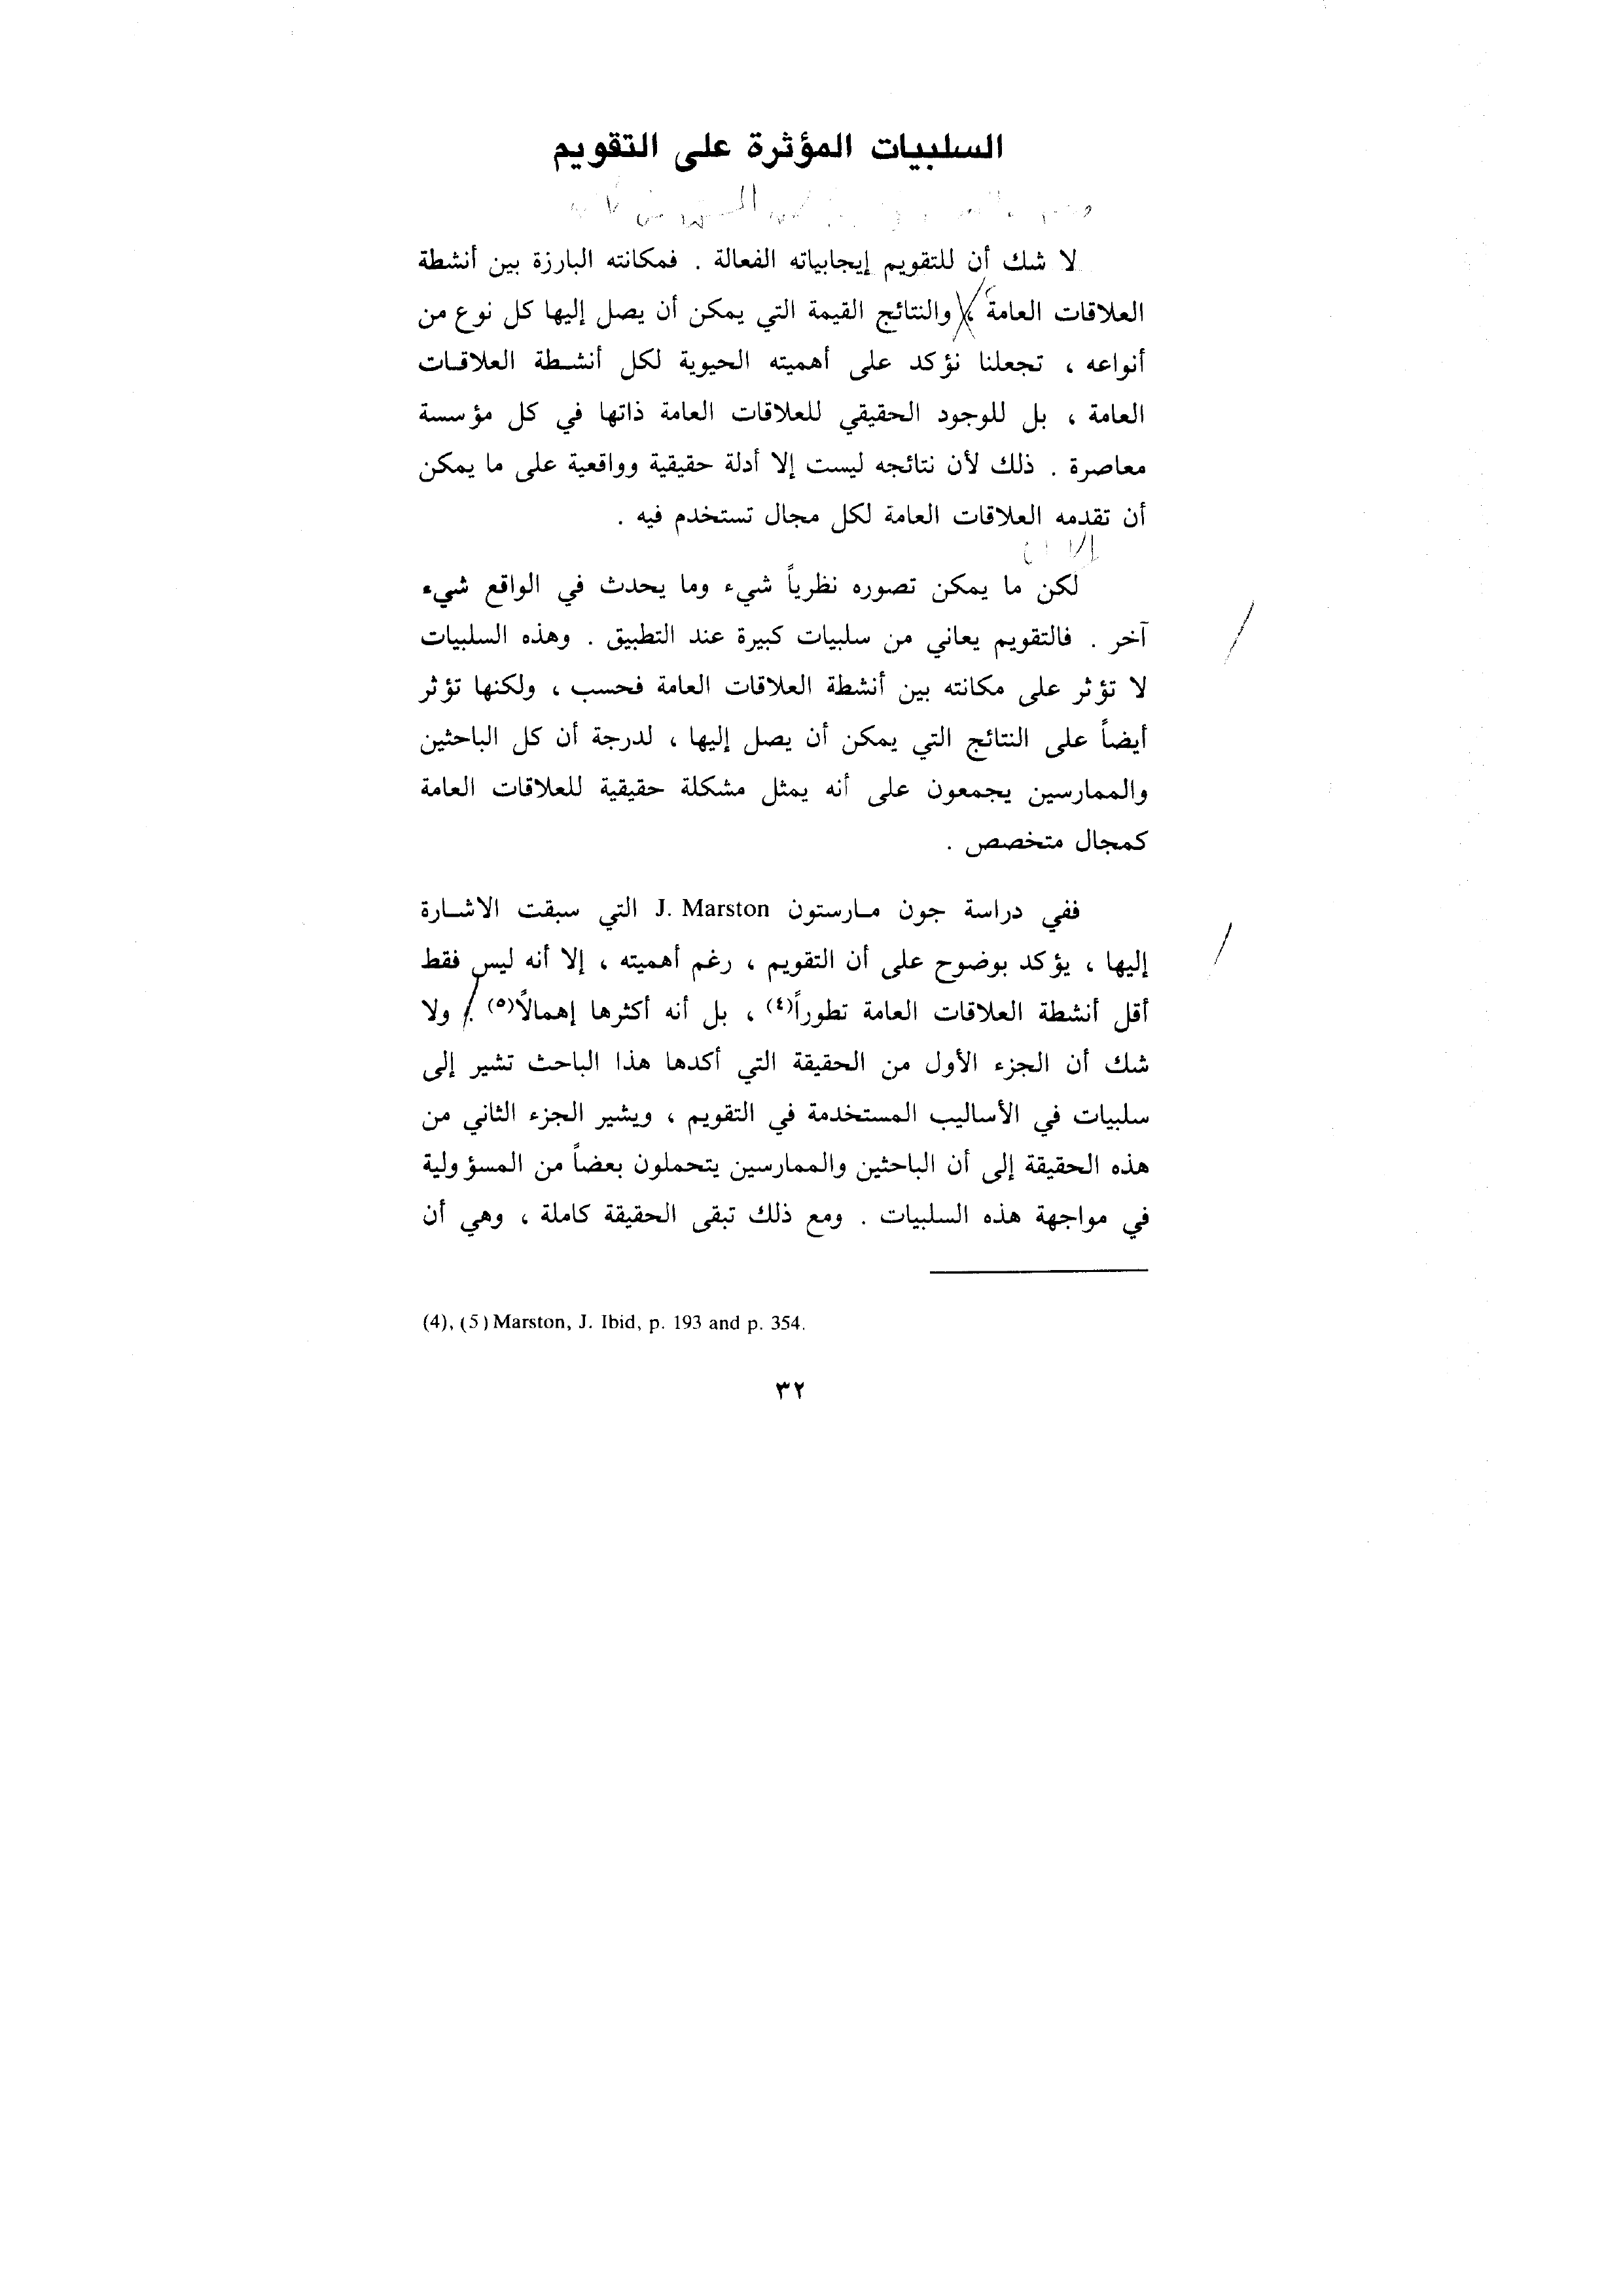 السلبيات المؤثرة على التقويم
لا شك أن للتقويم إيجابياته الفعالة . فمكانته البارزة بين أنشطة
العلاقات العامة ، والنتائج القيمة التي يمكن أن يصل إليها كل نوع من
أنواعه ، تجعلنا نؤكد على أهميته الحيوية لكل أنشطة العلاقات
العامة ، بل للوجود الحقيقي للعلاقات العامة ذاتها في كل مؤسسة
معاصرة . ذلك لأن نتائجه ليست إلا أدلة حقيقية وواقعية على ما يمكن
أن تقدمه العلاقات العامة لكل مجال تستخدم فيه .
لكن ما يمكن تصوره نظرياً شيء وما يحدث في الواقع شيء
آخر . فالتقويم يعاني من سلبيات كبيرة عند التطبيق . وهذه السلبيات
لا تؤثر على مكانته بين أنشطة العلاقات العامة فحسب ، ولكنها تؤثر
أيضاً على النتائج التي يمكن أن يصل إليها ، لدرجة أن كل الباحثين
والممارسين يجمعون على أنه يمثل مشكلة حقيقية للعلاقات العامة
كمجال متخصص .
ففي دراسة جون مارستون J. Marston التي سبقت الاشارة
إليها ، يؤكد بوضوح على أن التقويم ، رغم أهميته ، إلا أنه ليس فقط
أقل أنشطة العلاقات العامة تطوراً(٤) ، بل أنه أكثرها إهمالاً(٥) . ولا
شك أن الجزء الأول من الحقيقة التي أكدها هذا الباحث تشير إلى
سلبيات في الأساليب المستخدمة في التقويم ، ويشير الجزء الثاني من
هذه الحقيقة إلى أن الباحثين والممارسين يتحملون بعضاً من المسؤولية
في مواجهة هذه السلبيات . ومع ذلك تبقى الحقيقة كاملة ، وهي أن
(4), (5) Marston, J. Ibid, p. 193 and p. 354.
٣٢